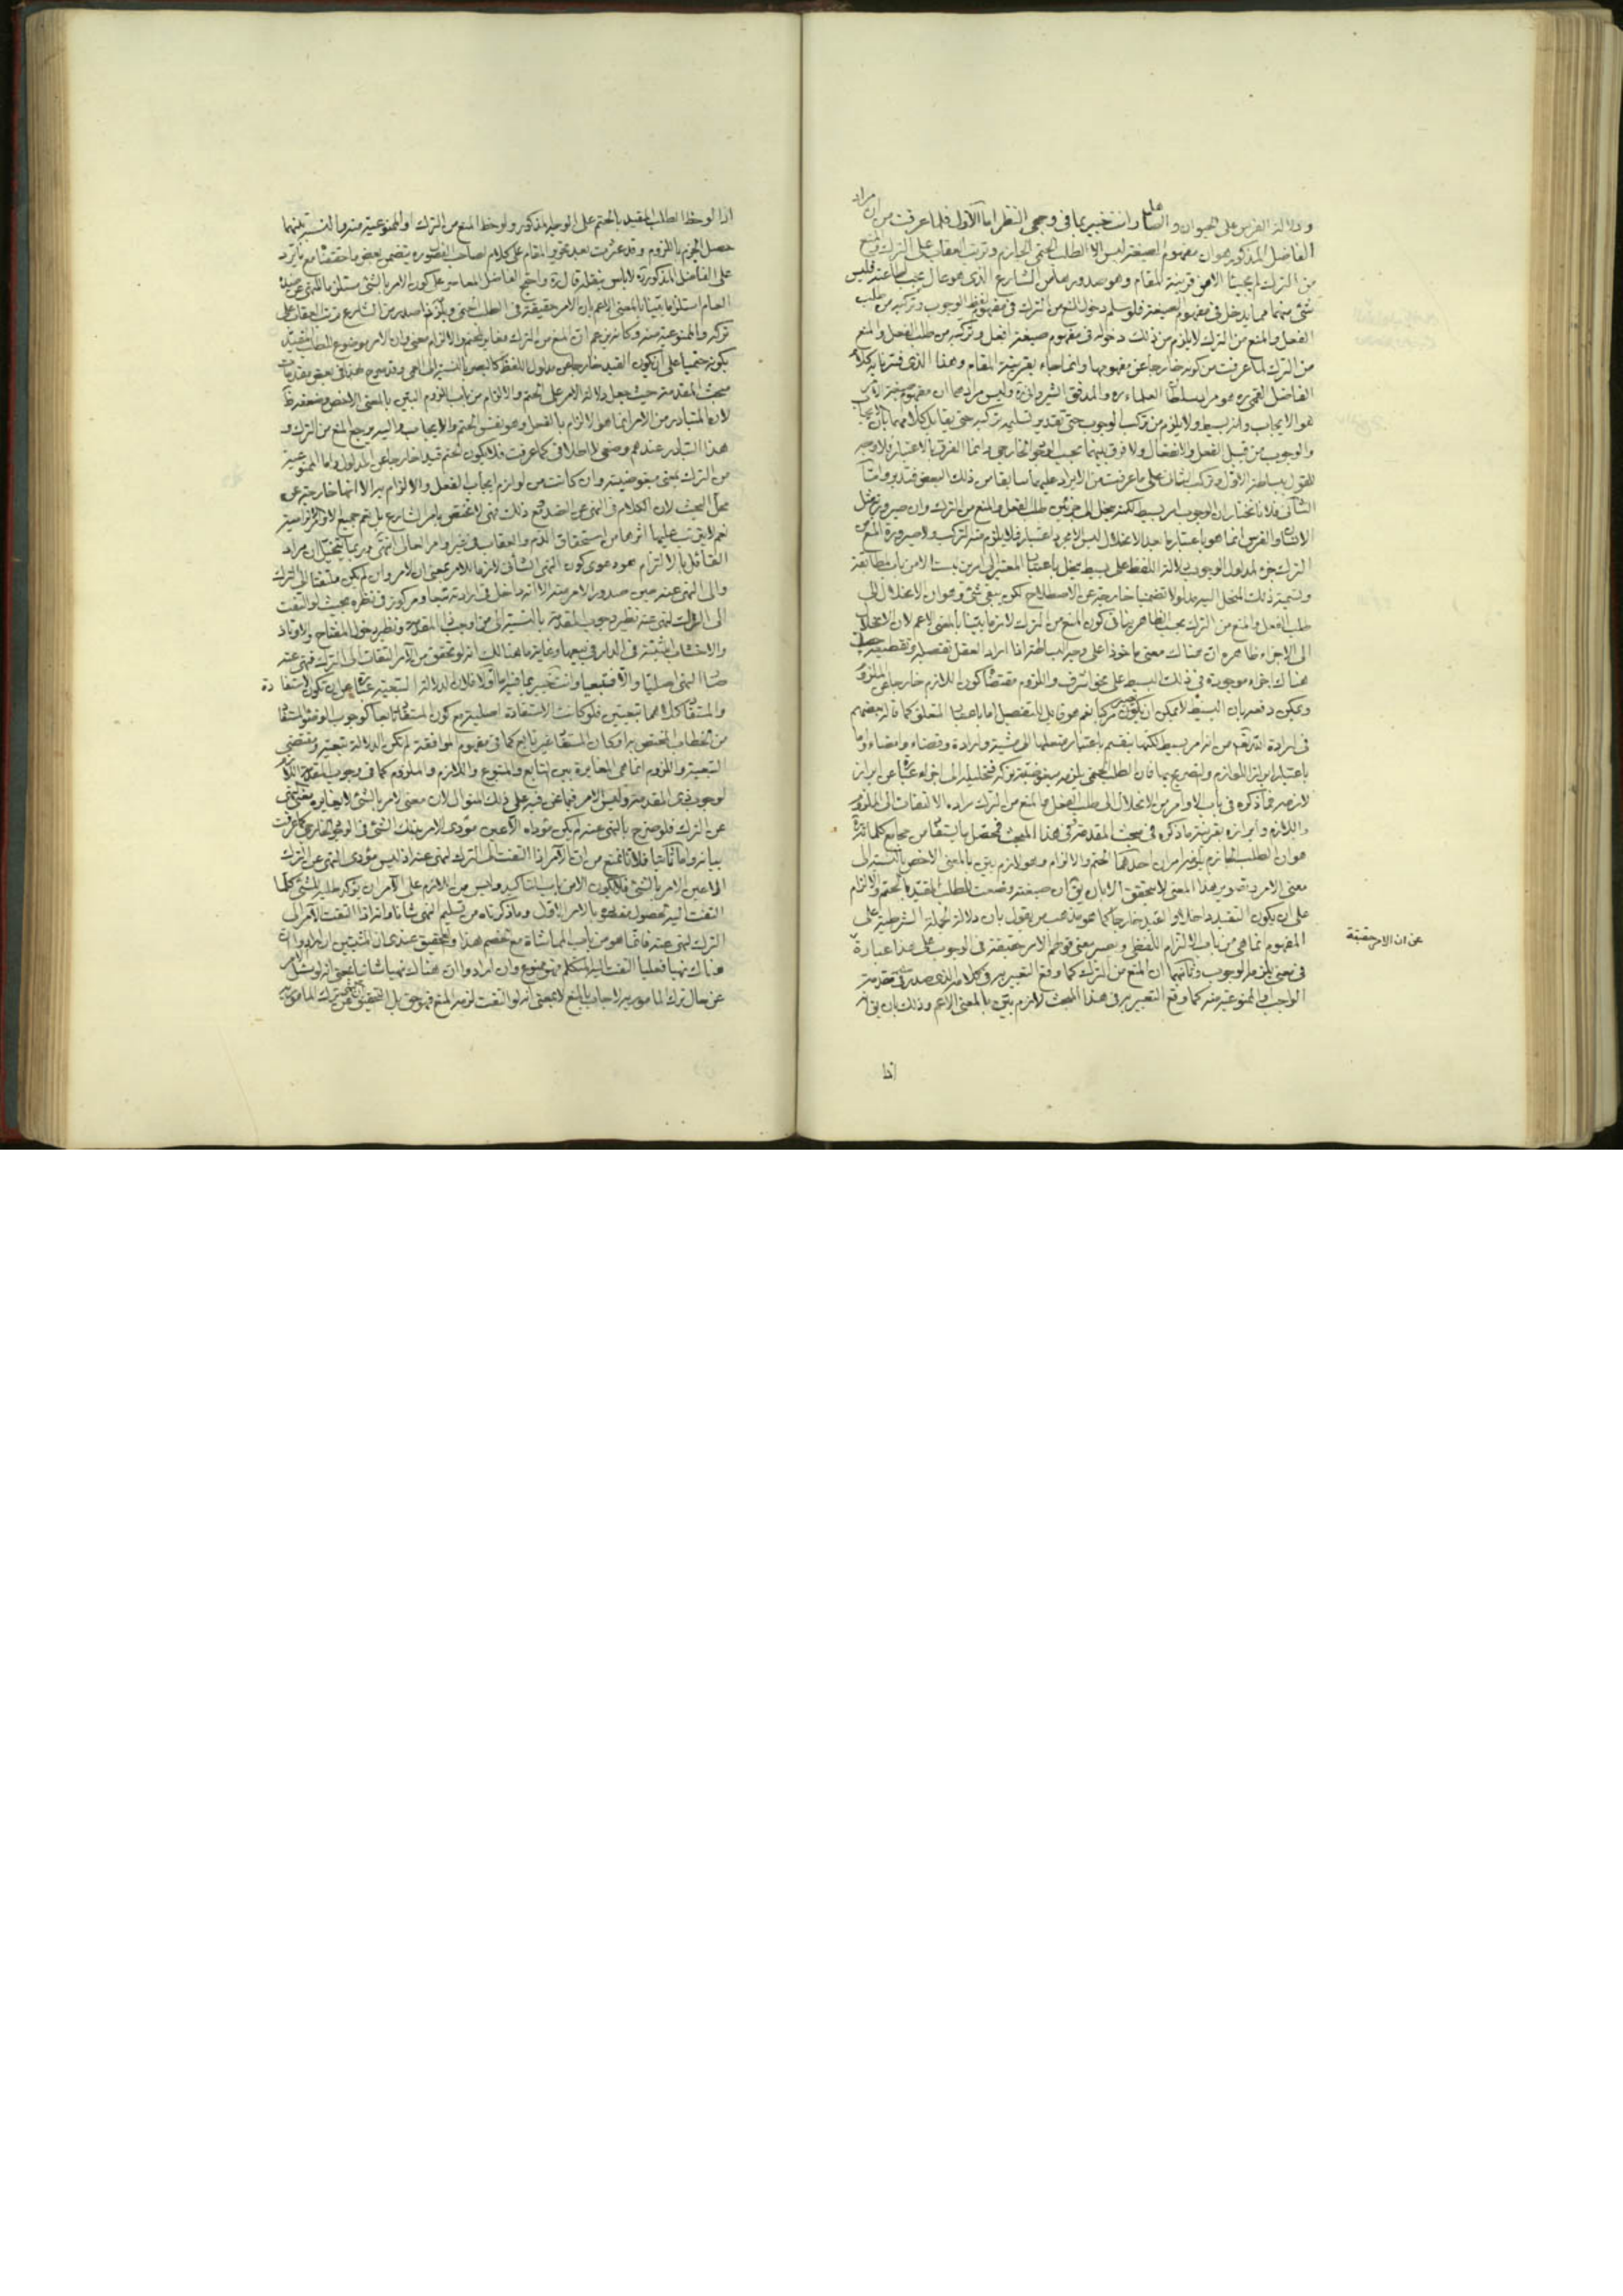 ودلالة الفرس على الحيوان و الصاهل وانت خبير بما في وجهي النظر اما الاول فلما عرفت من ان مراد
الفاضل المذكور هو ان مفهوم الصيغة ليس الا الطلب الحتمي الجازم وترتب العقاب على الترك والمنع
من الترك لم يجيئا الا من قرينة المقام وهو صدورها من الشارع الذي هو عال يجب اطاعته فليس
شئ منهما مما يدخل في مفهوم الصيغة فلو سلم دخول المنع من الترك في مفهوم لفظ الوجوب وتركبه من طلب
الفعل والمنع من الترك لا يلزم من ذلك دخوله في مفهوم صيغة افعل وتركبه من طلب الفعل والمنع
من الترك لما عرفت من كونه خارجا عن مفهومها وانما جاء بقرينة المقام وهذا الذي فسرنا به كلام
الفاضل القمي ره هو مراد سلطان العلماء ره والمدقق الشيرواني ره وليس مرادهما ان مفهوم صيغة الامر
هو الايجاب وانه بسيط ولا يلزم من تركب الوجوب حتى تقدير تسليمه تركبه حتى يقابل كلامهما بان الايجاب
والوجوب من قبيل الفعل والانفعال ولا فرق بينهما بحسب الوجود الخارجي وانما الفرق بالاعتبار فلا وجه
للقول ببساطة الاول وتركب الثاني على ما عرفت من الايراد عليهما سابقا من ذلك البعض فتدبر واما
الثاني فلانا نختار ان الوجوب امر بسيط لكنه ينحل الى جزئين طلب الفعل والمنع من الترك وان صيرورة مثل
الانسان والفرس انما هو باعتبار ما بعد الانحلال ليس الا مجرد اعتبار فلا يلزم منه التركب ولا صيرورة المنع من
الترك جزء لمدلول الوجوب ودلالة اللفظ على بسيط ينحل باعتبار المعتبر الى امرين ليست الا من باب المطابقة
وتسمية ذلك المنحل اليه مدلولا تضمنيا خارجة عن الاصطلاح لكن يبقى شئ وهو ان الانحلال الى
طلب الفعل والمنع من الترك بحسب الظاهر ينافي كون المنع من الترك لازما بينا بالمعنى الاعم لان الانحلال
الى الاجزاء ظاهره ان هناك معنى ماخوذا على وجه البساطة اذا اراد العقل تفصيله وتقطيعه حصل
هناك اجزاء موجودة في ذلك البسيط على نحو اشرف واللزوم مقتضاه كون اللازم خارجا عن الملزوم
ويمكن دفعه بان البسيط لا يمكن ان يكون مركبا نعم هو قابل للتفصيل اما باعتبار المتعلق كما قال بعضهم
في ارادة الله تعالى من انه امر بسيط لكنها ينقسم باعتبار متعلقها الى مشية وارادة وقضاء وامضاء واما
باعتبار ابراز اللوازم والتصريح بها فان الطلب الحتمي يلزمه مبغوضية تركه فتحليله الى اجزاء عبارة عن ابراز
لازمه فما ذكره في باب الاوامر من الانحلال الى طلب الفعل مع المنع من الترك مراده الالتفات الى الملزوم
واللازم وابرازه بقرينة ما ذكره في مبحث المقدمة وفي هذا المبحث فتحصل مما يستفاد من مجامع كلماته ره
هو ان الطلب الجازم يلزمه امران احدهما الحتم والالزام وهو لازم بين بالمعنى الاخص بالنسبة الى
معنى الامر وتصوير هذا المعنى لا يتحقق الا بان يق ان صيغته وضعت للطلب المقيد بالحتم والالزام
على ان يكون التقييد داخلا والقيد خارجا كما هو مذهب من يقول بان دلالة الجملة الشرطية على
المفهوم انما هي من باب الالتزام اللفظي ويفسر معنى قولهم الامر حقيقة في الوجوب على هذا عبارة
عن ان الامر حقيقة
في معنى يلزمه الوجوب وثانيهما ان المنع من الترك كما وقع التعبير به في كلامه الذي صدر في مقدمة
الواجب او الممنوعية منه كما وقع التعبير به في هذا المبحث لازم بين بالمعنى الاعم وذلك بان يق انه
اذا
اذا لوحظ الطلب المقيد بالحتم على الوجه المذكور ولوحظ المنع من الترك او الممنوعية منه والنسبة بينهما
حصل الجزم باللزوم وقد عثرت بعد تحرير المقام على كلام لصاحب الفصول ره يتضمن بعض ما حققناه مع ما يرد
على الفاضل المذكور ره لا باس بنقله قال ره واحتج الفاضل المعاصر على كون الامر بالشئ مستلزما للنهي عن ضده
العام استلزاما بينا بالمعنى الاعم بان الامر حقيقة في الطلب الحتمي ويلزمه اذا صدر من الشارع ترتب العقاب على
تركه والممنوعية منه وكانه يزعم ان المنع من الترك مغاير للحتم والالزام معنى وان الامر موضوع للطلب المقيد
بكونه حتميا على ان يكون القيد خارجا عن مدلول اللفظ كالبصر بالنسبة الى العمى وقد صرح بهذا في بعض مقدمات
مبحث المقدمة حيث جعل دلالة الامر على الحتم والالزام من باب اللزوم البين بالمعنى الاخص وضعفه ظ
لان المتبادر من الامر انما هو الالزام بالفعل وهو نفس الحتم والايجاب واليه يرجع المنع من الترك و
هذا التبادر عندهم وضعي لا اطلاقي كما عرفت فلا يكون الحتم قيدا خارجا عن المدلول واما الممنوعية
من الترك بمعنى مبغوضيته وان كانت من لوازم ايجاب الفعل والالزام به الا انها خارجة عن
محل البحث لان الكلام في النهي عن الضد ومع ذلك فهي لا تختص بامر الشارع بل يعم جميع الاوامر الالزامية
نعم لا يترتب عليها اثرها من استحقاق الذم والعقاب في غير اوامر العالي انتهى وربما يتخيل ان مراد
القائل بالالتزام هو دعوى كون النهي الشاني لازما للامر بمعنى ان الامر وان لم يكن ملتفتا الى الترك
والى النهي عنه حين صدور الامر منه الا انه داخل في ارادته تبعا ومركوز في نظره بحيث لو التفت
الى الترك لنهى عنه نظير وجوب المقدمة بالنسبة الى من اوجب ذا المقدمة ونظير دخول المفتاح والاوتاد
والاخشاب المثبتة في الدار في بيعها وغاية ما هنالك انه لو تحقق من الامر التفات الى الترك فنهى عنه
صار النهي اصليا والا فتبعيا وانت خبير بما فيه اما اولا فلان الدلالة التبعية عبارة عن ان تكون الاستفادة
والمستفاد كلاهما تبعيين فلو كانت الاستفادة اصلية مع كون المستفاد تابعا كوجوب الوضوء المستفاد
من الخطاب المختص به او كان المستفاد غير تابع كما في مفهوم الموافقة لم يكن الدلالة تبعية ومقتضى
التبعية واللزوم انما هي المغايرة بين التابع والمتبوع واللازم والملزوم كما في وجوب المقدمة اللازم
لوجوب ذي المقدمة وليس الامر فيما نحن فيه على ذلك المنوال لان معنى الامر بالشئ لا يغاير معنى النهي
عن الترك فلو صرح بالنهي عنه لم يكن مؤداه الا عين مؤدى الامر بذلك الشئ في الوجود الخارجي كما عرفت
بيانه واما ثانيا فلانا نمنع من ان الامر اذا التفت الى الترك لنهى عنه اذ ليس مؤدى النهي عن الترك
الا عين الامر بالشئ فيكون الامر من باب التاكيد وليس من اللازم على الآمر ان يؤكد طلبه للشئ كلما
التفت اليه لحصول مقصوده بالامر الاول وما ذكرناه من تسليم النهي شانا وانه اذا التفت الآمر الى
الترك لنهى عنه فانما هو من باب المماشاة مع الخصم هذا والتحقيق عندي ان المثبتين ان ارادوا ان
هناك نهيا فعليا التفت اليه المتكلم فهو ممنوع وان ارادوا ان هناك نهيا شانيا بمعنى انه لو سئل الامر
عن حال ترك المامور به لاجاب بالمنع لا بمعنى انه لو التفت لزمه المنع فهو حق بل التحقيق ان النهي عن ترك المامور به